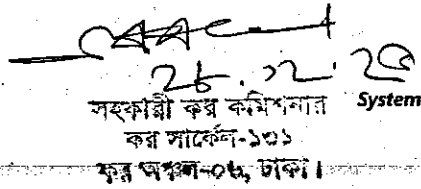 26.12.
সহকারী কর কমিশনার System
কর সার্কেল-১৩১
কর অঞ্চল-০৬, ঢাকা।